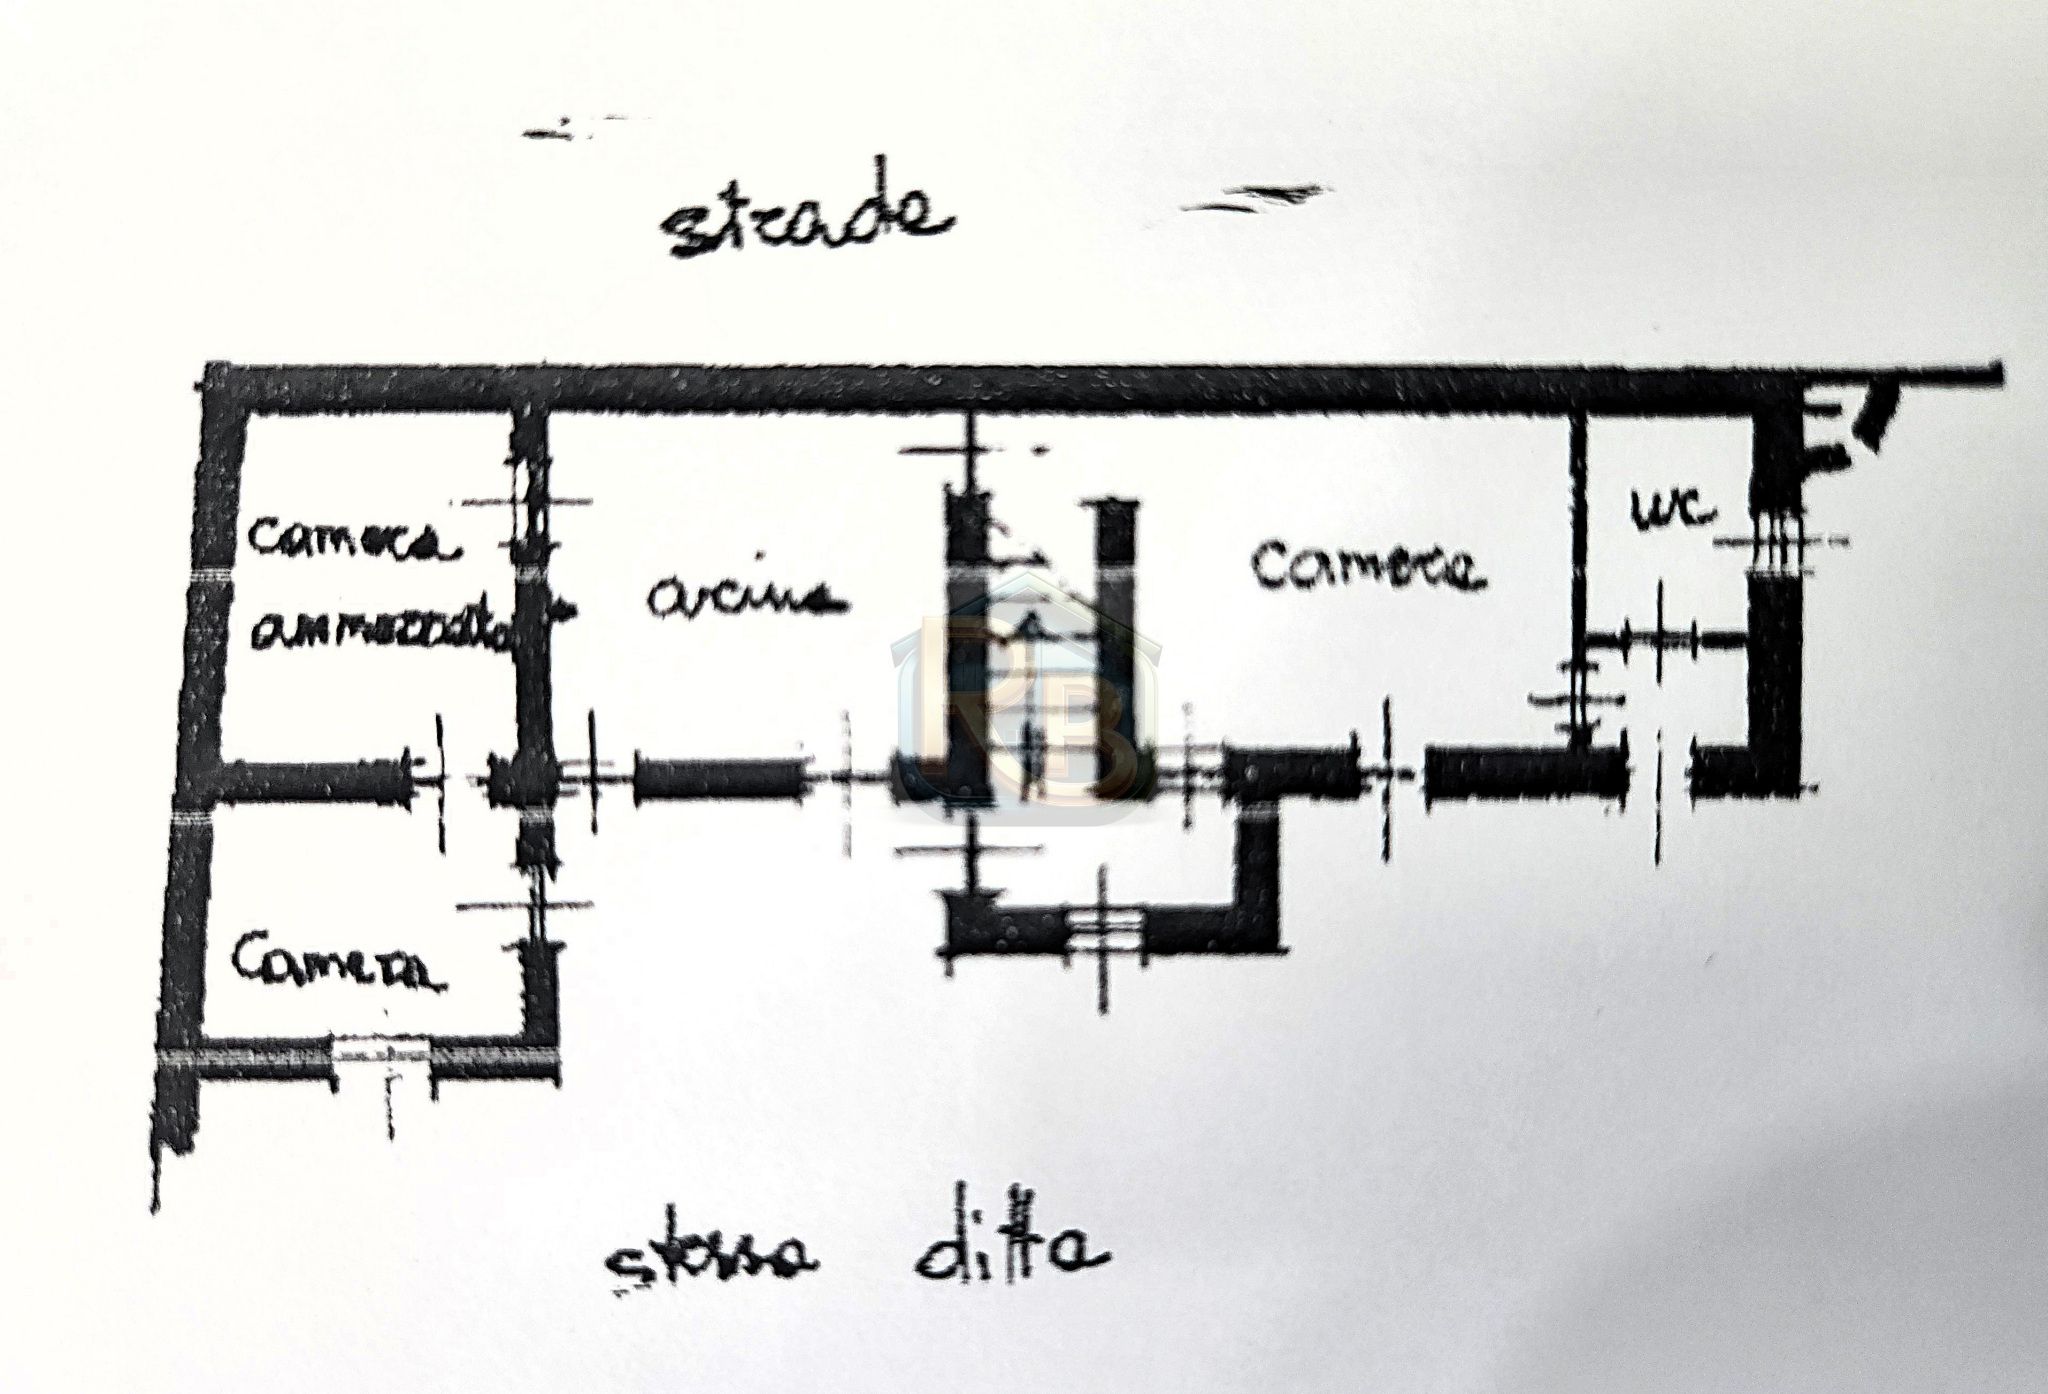 strada
camera
ammezzato
cucina
camera
wc
Camera
RB
stessa ditta